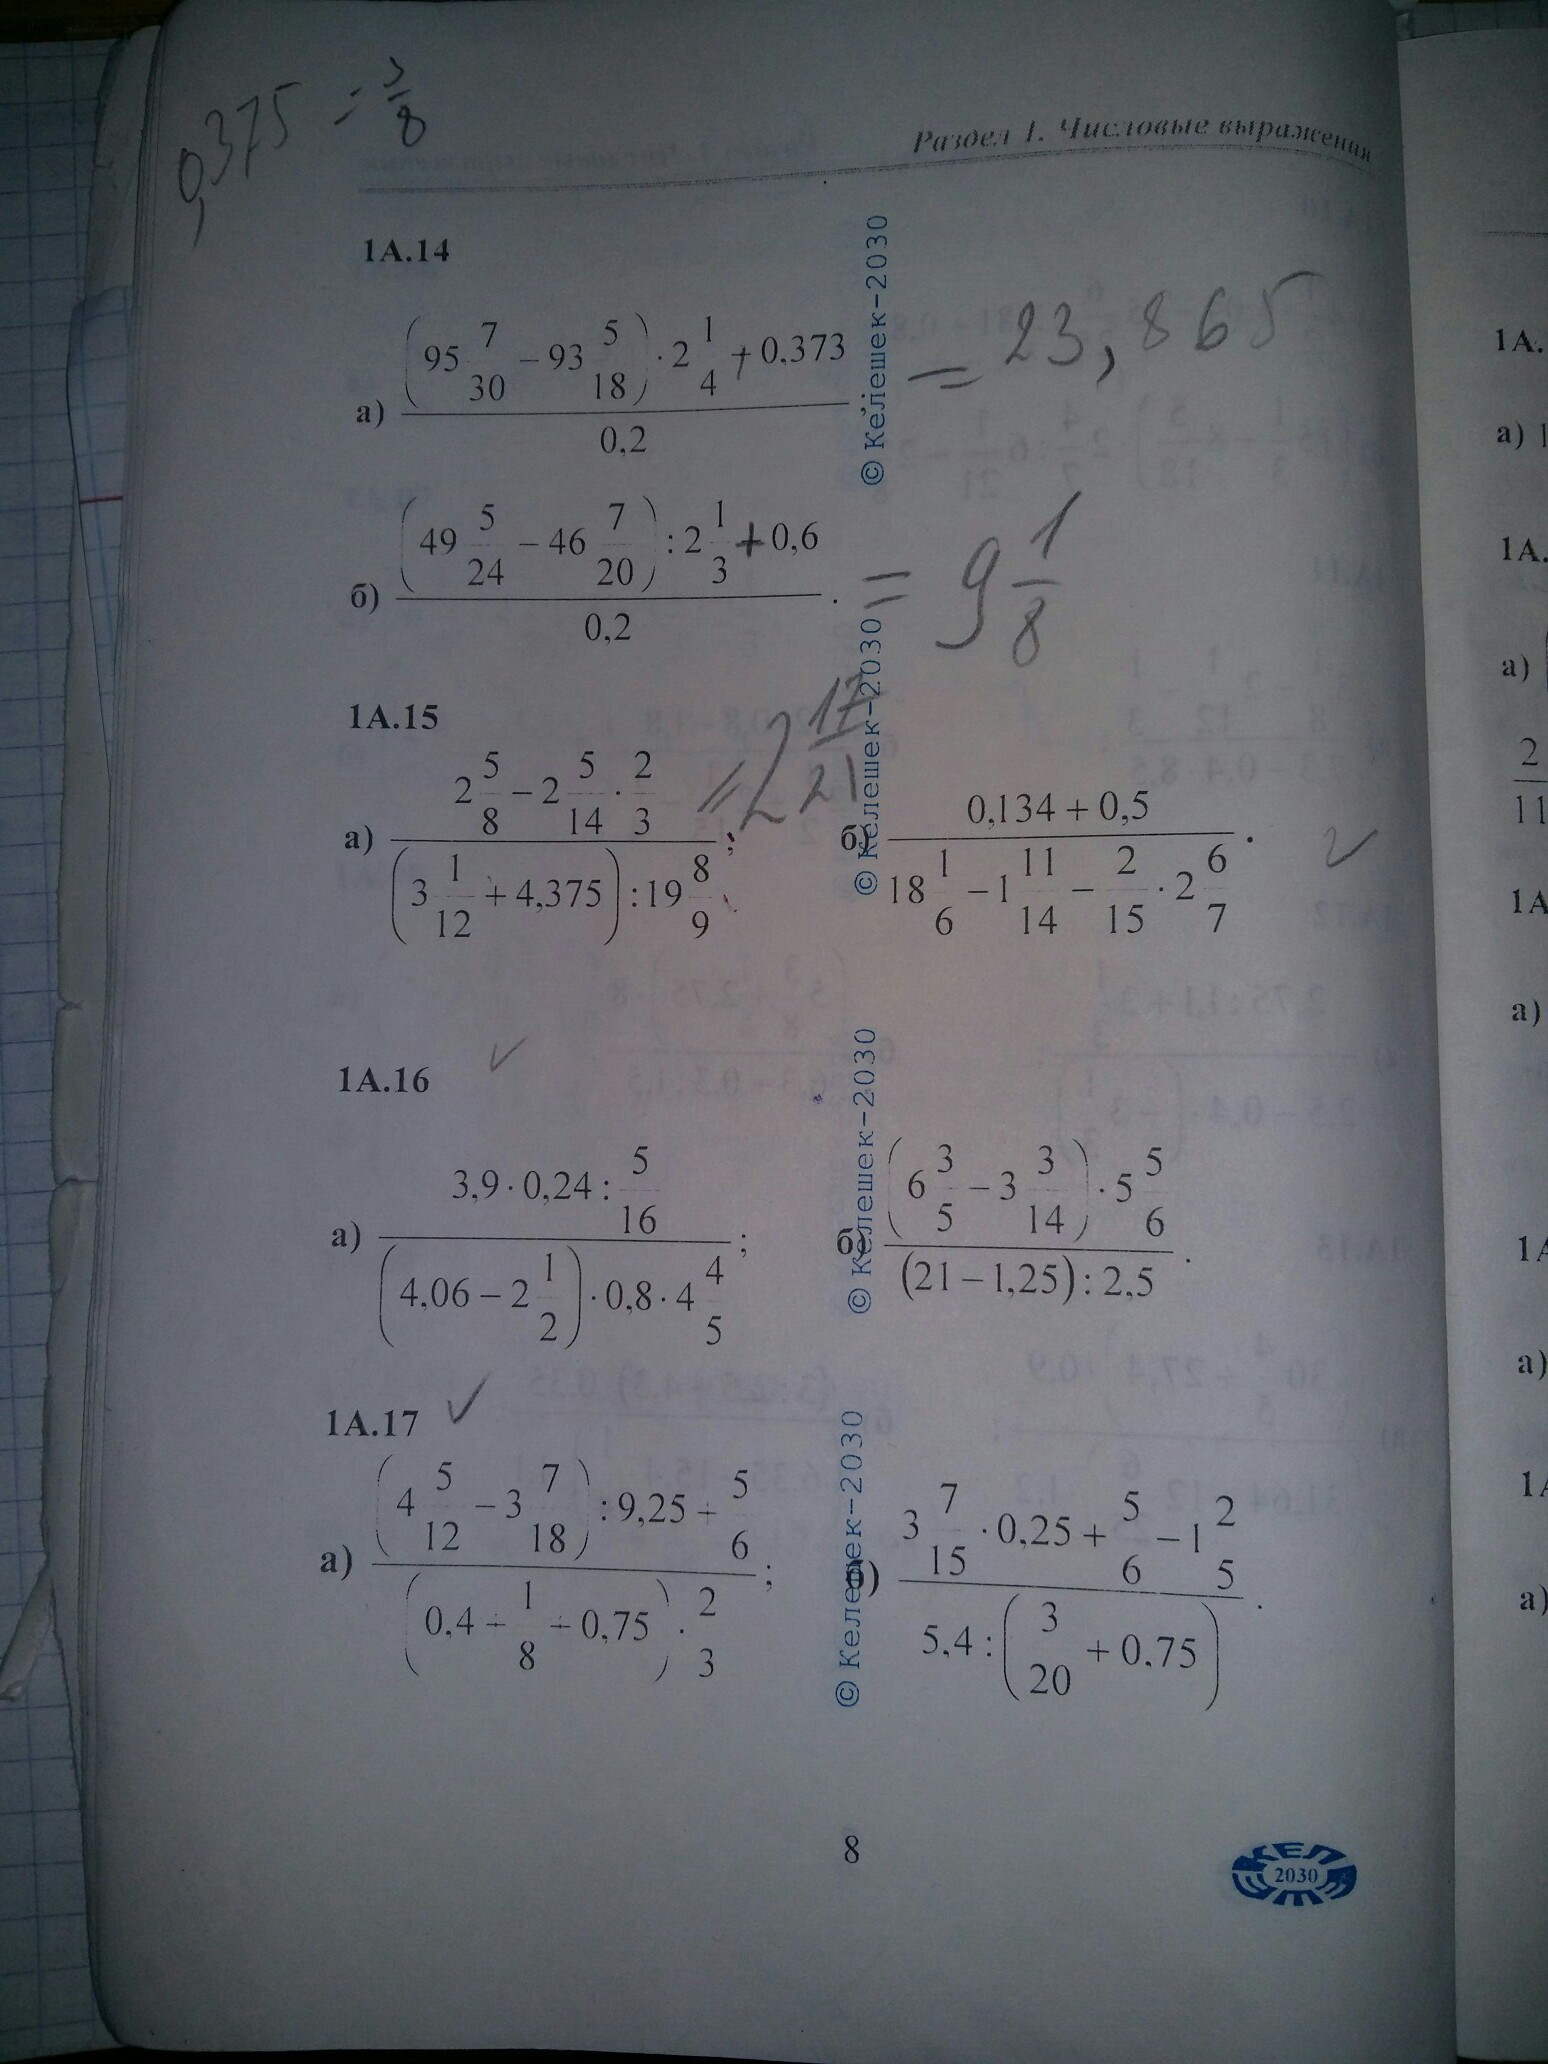 0,375 = 3/8
Раздел 1. Числовые выражения
1А.14
а) ((95 7/30 − 93 5/18) · 2 1/4 + 0,373) / 0,2 ; = 23,865
б) ((49 5/24 − 46 7/20) : 2 1/3 + 0,6) / 0,2 . = 9 1/8
1А.15
а) (2 5/8 − 2 5/14 · 2/3) / ((3 1/12 + 4,375) : 19 8/9) ; = 2 17/21
б) (0,134 + 0,5) / (18 1/6 − 1 11/14 − 2/15 · 2 6/7) .
1А.16
а) (3,9 · 0,24 : 5/16) / ((4,06 − 2 1/2) · 0,8 · 4 4/5) ;
б) ((6 3/5 − 3 3/14) · 5 5/6) / ((21 − 1,25) : 2,5) .
1А.17
а) ((4 5/12 − 3 7/18) : 9,25 + 5/6) / ((0,4 + 1/8 + 0,75) · 2/3) ;
б) (3 7/15 · 0,25 + 5/6 − 1 2/5) / (5,4 : (3/20 + 0,75)) .
© Келешек-2030
© Келешек-2030
© Келешек-2030
© Келешек-2030
8
КЕЛЕШЕК
2030
1А.
а) 1
1А.
а)
2
11
1А
а)
1А
а)
1А
а)